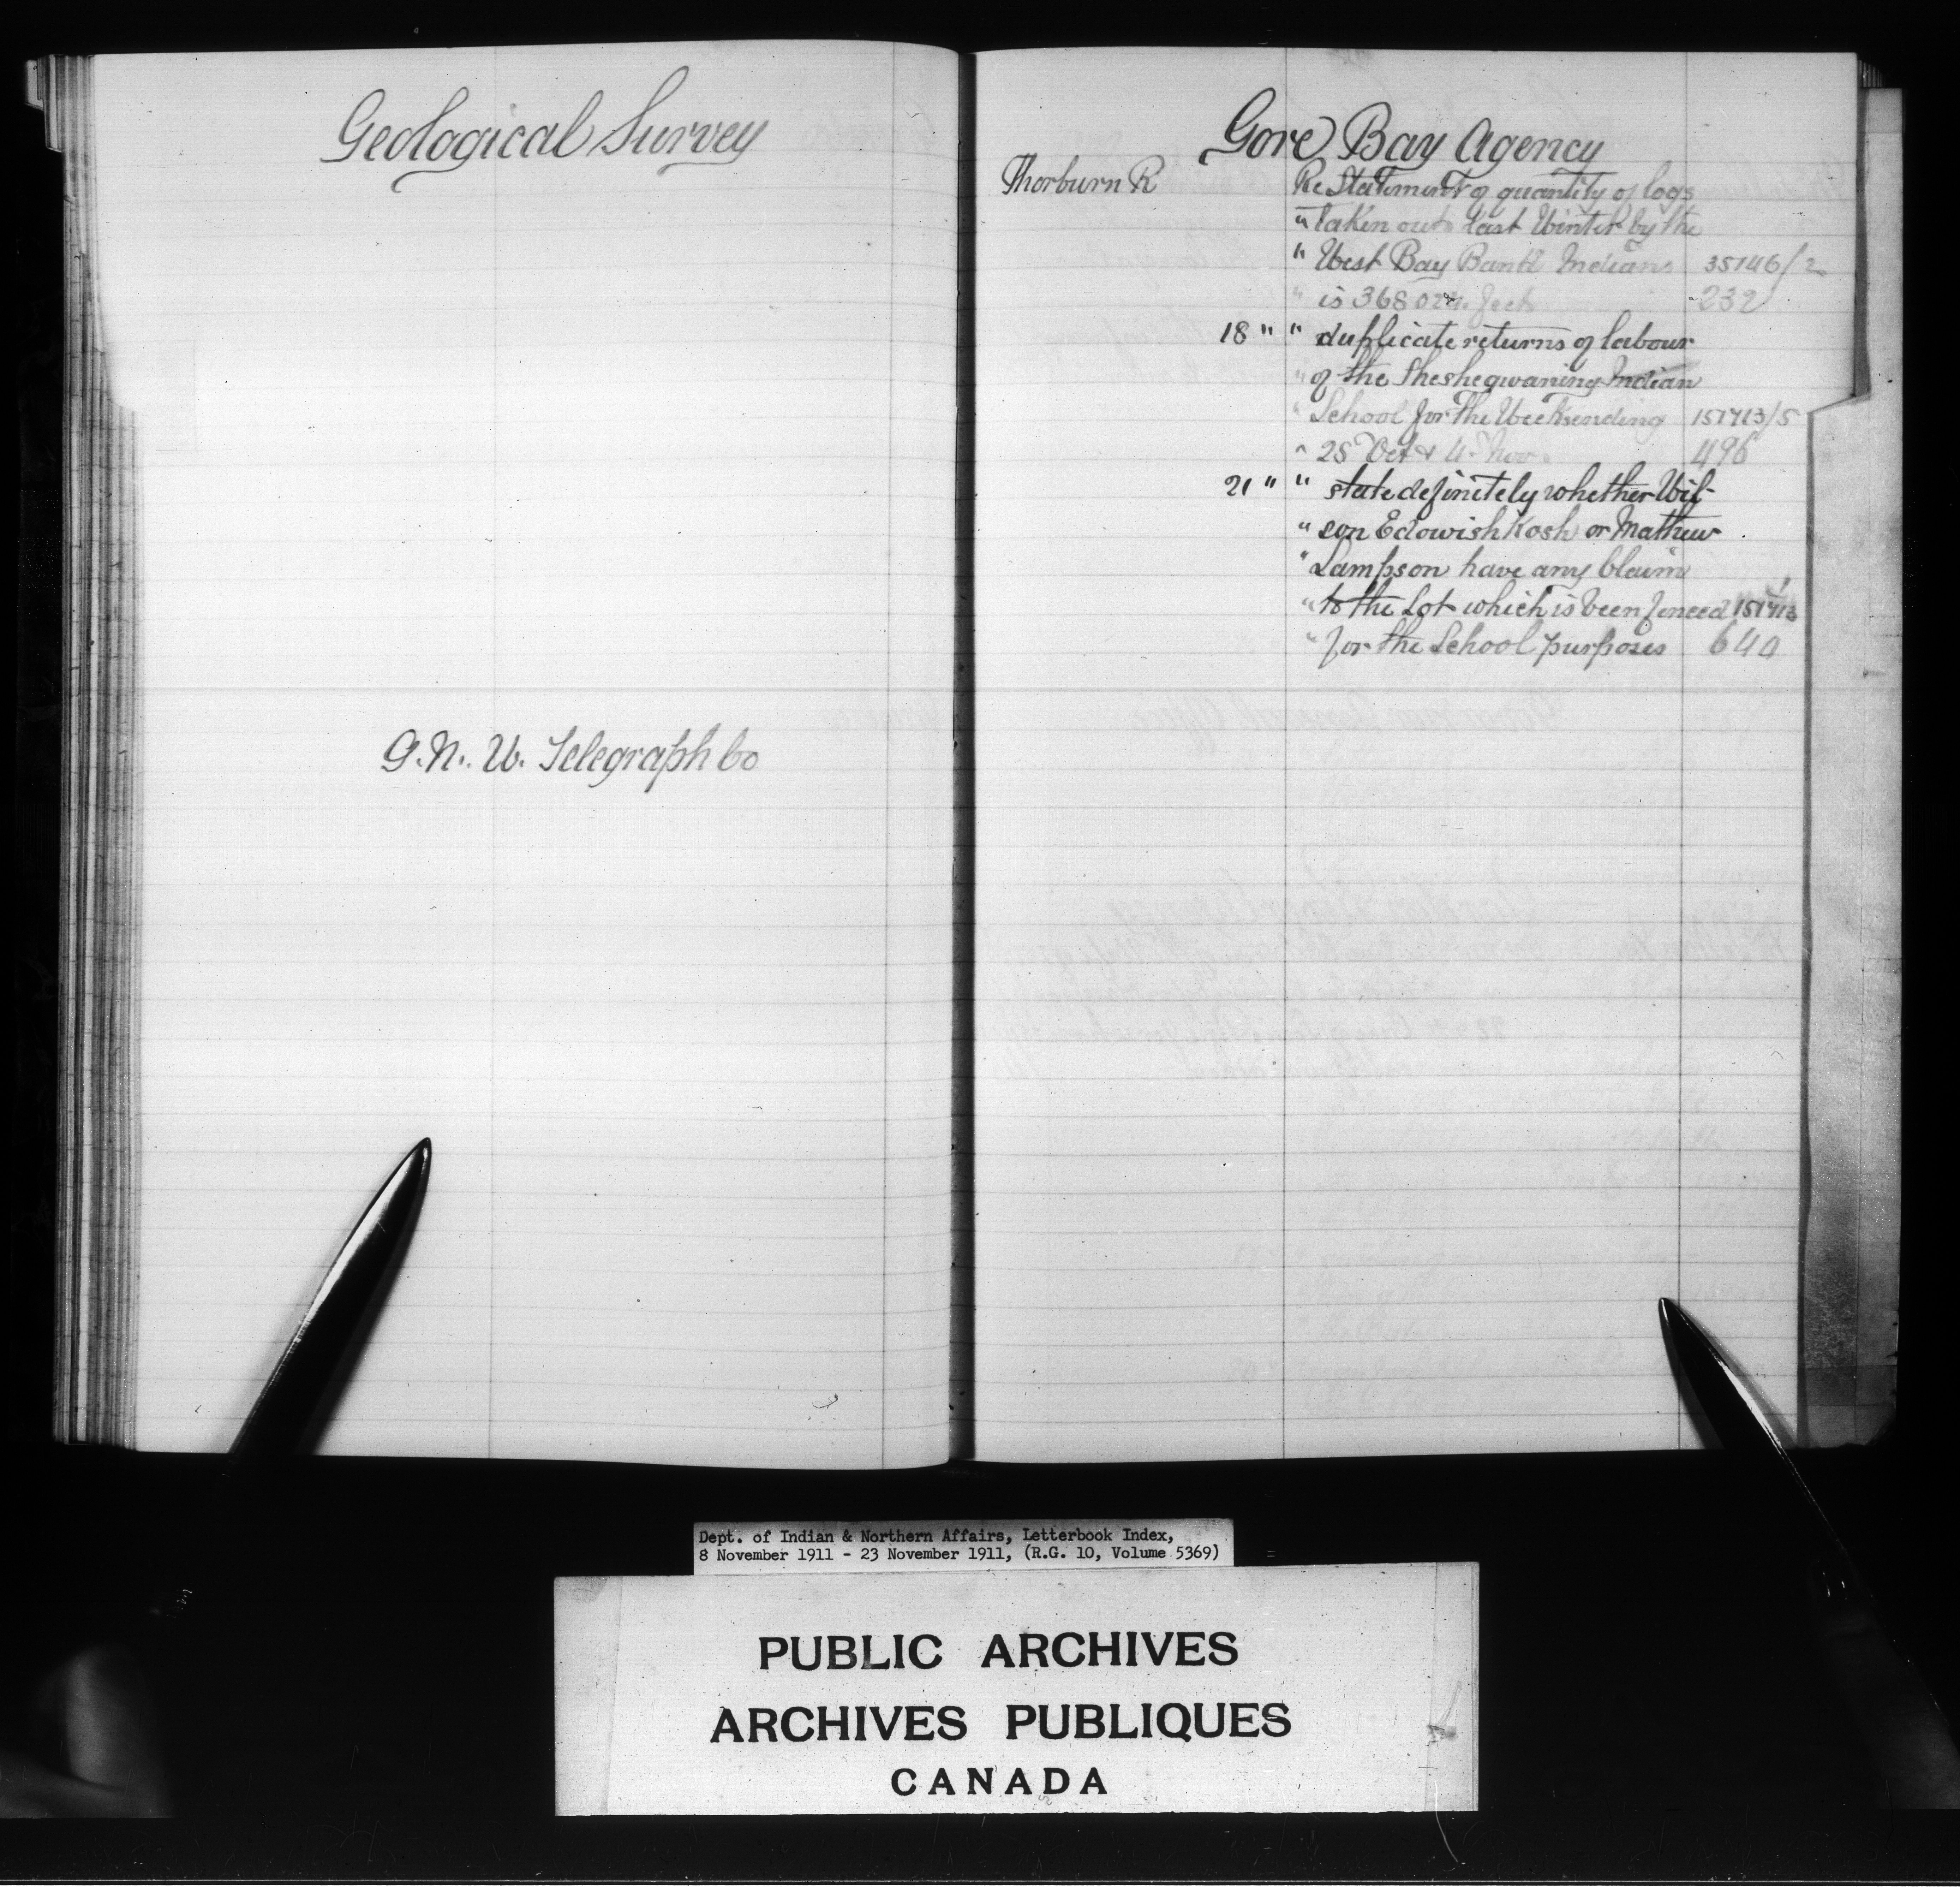 Geological Survey
G. N. W. Telegraph Co
Gore Bay Agency
Thorburn R Re Statement of quantity of logs
" taken out last Winter by the
" West Bay Band Indians 35146/2
" is 368 feet 232
18 " " duplicate returns of labour
" of the Sheshegwaning Indian
" School for the Weeks ending 151713/5
" 28 Oct & 4 Nov. 496
21 " " state definitely whether Wil-
" son Edowishkosh or Mathew
" Lampson have any Claim
" to the Lot which is been fenced 151713
" for the School purposes 640
Dept. of Indian & Northern Affairs, Letterbook Index,
8 November 1911 - 23 November 1911, (R.G. 10, Volume 5369)
PUBLIC ARCHIVES
ARCHIVES PUBLIQUES
CANADA